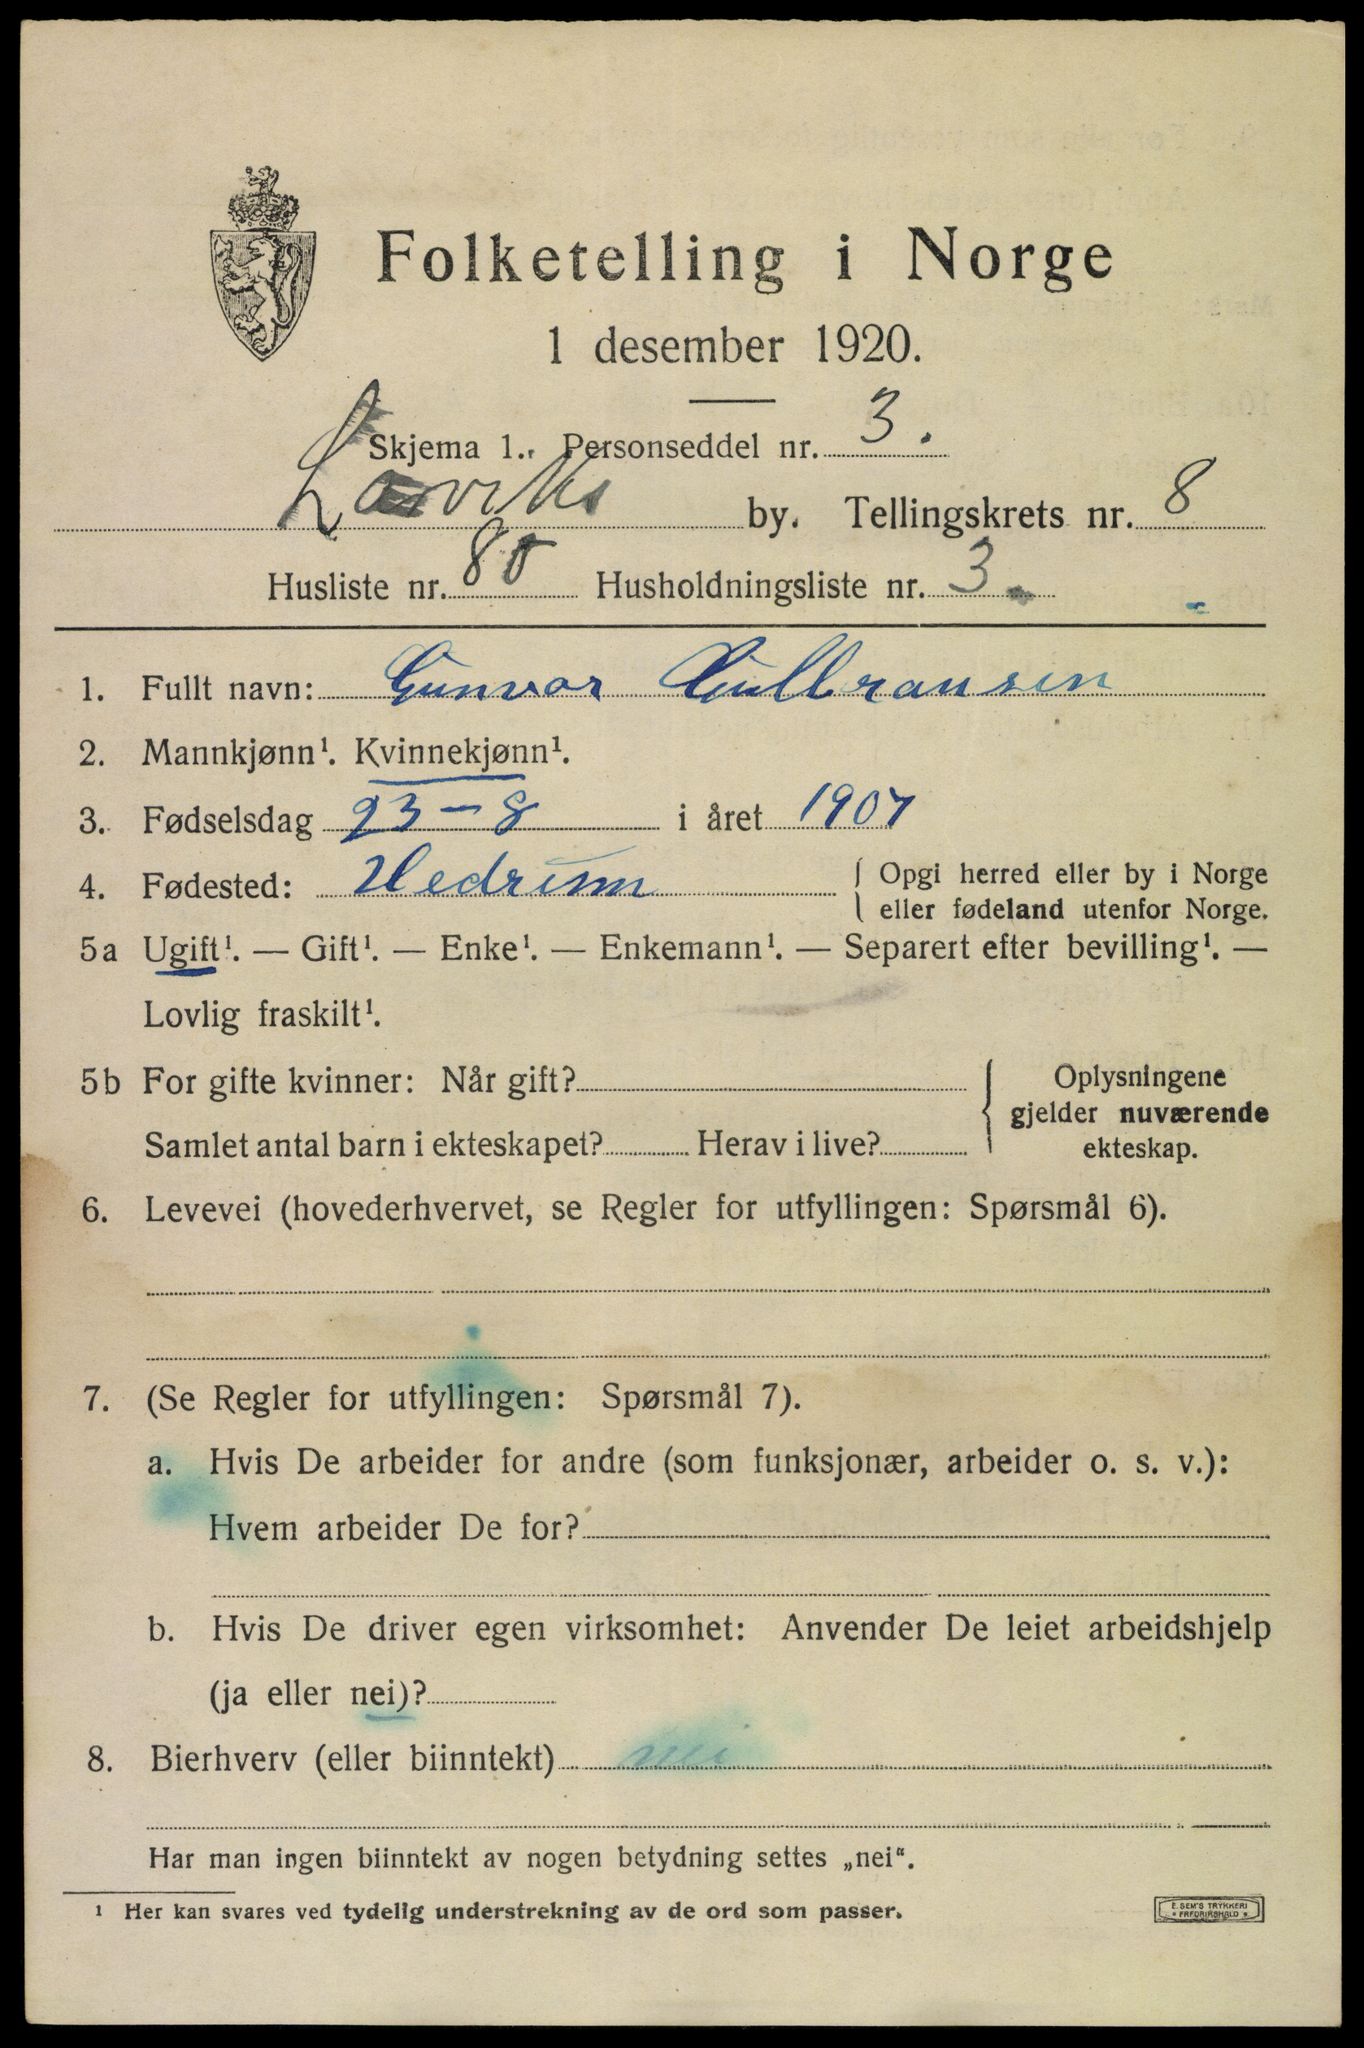 Folketelling i Norge
1 desember 1920.
Skjema 1. Personseddel nr. 3.
Larviks by. Tellingskrets nr. 8
Husliste nr. 80 Husholdningsliste nr. 3.
1. Fullt navn: Gunvor Gulbransen
2. Mannkjønn¹. Kvinnekjønn¹.
3. Fødselsdag 23-8 i året 1907
4. Fødested: Hedrum { Opgi herred eller by i Norge
eller fødeland utenfor Norge.
5a Ugift¹. — Gift¹. — Enke¹. — Enkemann¹. — Separert efter bevilling¹. —
Lovlig fraskilt¹.
5b For gifte kvinner: Når gift? { Oplysningene
gjelder nuværende
Samlet antal barn i ekteskapet? Herav i live? ekteskap.
6. Levevei (hovederhvervet, se Regler for utfyllingen: Spørsmål 6).
7. (Se Regler for utfyllingen: Spørsmål 7).
a. Hvis De arbeider for andre (som funksjonær, arbeider o. s. v.):
Hvem arbeider De for?
b. Hvis De driver egen virksomhet: Anvender De leiet arbeidshjelp
(ja eller nei)?
8. Bierhverv (eller biinntekt) nei
Har man ingen biinntekt av nogen betydning settes „nei“.
¹ Her kan svares ved tydelig understrekning av de ord som passer.
E. SEM'S TRYKKERI
FREDRIKSHALD